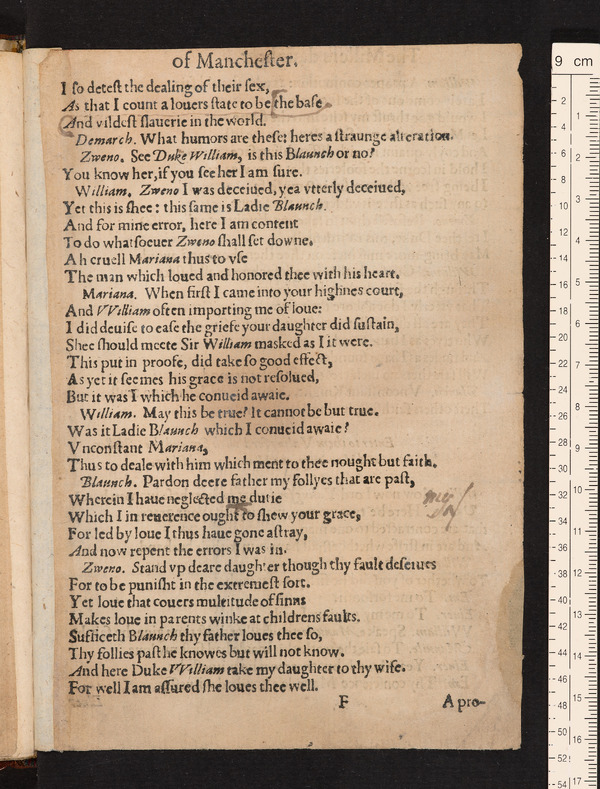 of Mancheſter.
I ſo deteſt the dealing of their ſex,
As that I count a louers ſtate to be the baſe
And vildeſt ſlauerie in the world.
Demarch. What humors are theſe: heres a ſtraunge alteration.
Zweno. See Duke William, is this Blaunch or no?
You know her, if you ſee her I am ſure.
William. Zweno I was deceiued, yea vtterly deceiued,
Yet this is ſhee: this ſame is Ladie Blaunch.
And for mine error, here I am content
To do whatſoeuer Zweno ſhall ſet downe.
Ah cruell Mariana thus to vſe
The man which loued and honored thee with his heart.
Mariana. When firſt I came into your highnes court,
And VVilliam often importing me of loue:
I did deuiſe to eaſe the griefe your daughter did ſuſtain,
Shee ſhould meete Sir William masked as I it were.
This put in proofe, did take ſo good effect,
As yet it ſeemes his grace is not reſolued,
But it was I which he conueid awaie.
William. May this be true? It cannot be but true.
Was it Ladie Blaunch which I conueid awaie?
Vnconſtant Mariana,
Thus to deale with him which ment to thee nought but faith.
Blaunch. Pardon deere father my follyes that are paſt,
Wherein I haue neglected me dutie
my
Which I in reuerence ought to ſhew your grace,
For led by loue I thus haue gone aſtray,
And now repent the errors I was in.
Zweno. Stand vp deare daughter though thy fault deſerues
For to be puniſht in the extremeſt ſort.
Yet loue that couers multitude of ſinns
Makes loue in parents winke at childrens faults.
Sufficeth Blaunch thy father loues thee ſo,
Thy follies paſt he knowes but will not know.
And here Duke VVilliam take my daughter to thy wife.
For well I am aſſured ſhe loues thee well.
F A pro-
9 cm
2 1
4
6 2
8
10 3
12
14 4
16
18 5
20
22 6
24
26 7
28
30 8
32
34 9
36
38 10
40
42 11
44 12
46
48 13
50
52 14
54 15
16
17